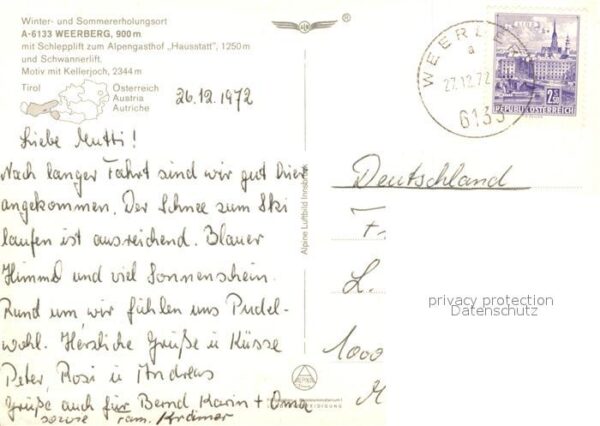 Winter- und Sommererholungsort
A-6133 WEERBERG, 900 m
mit Schlepplift zum Alpengasthof „Hausstatt", 1250 m
und Schwannerlift.
Motiv mit Kellerjoch, 2344 m
Tirol
Österreich
Austria
Autriche
26.12.1972
Liebe Mutti!
Nach langer Fahrt sind wir gut hier
angekommen. Der Schnee zum Ski
laufen ist ausreichend. Blauer
Himmel und viel Sonnenschein.
Rund um wir fühlen uns Pudel-
wohl. Herzliche Grüße u Küsse
Peter, Rosi u Andreas
Grüße auch für Bernd Karin + Oma
sowie Fam. Krämer
Alpine Luftbild Innsbruck
WEERBERG
a
27.12.72
6133
LINZ
2.50
REPUBLIK ÖSTERREICH
Deutschland
F.
L.
1000
privacy protection
Datenschutz